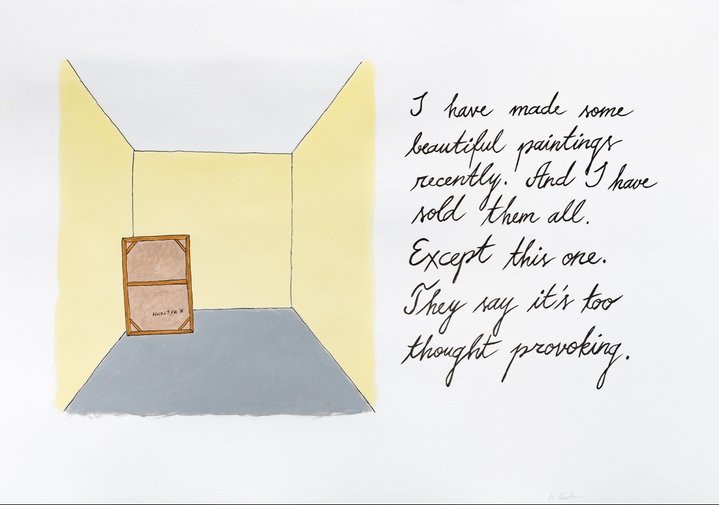 I have made some
beautiful paintings
recently. And I have
sold them all.
Except this one.
They say it's too
thought provoking.